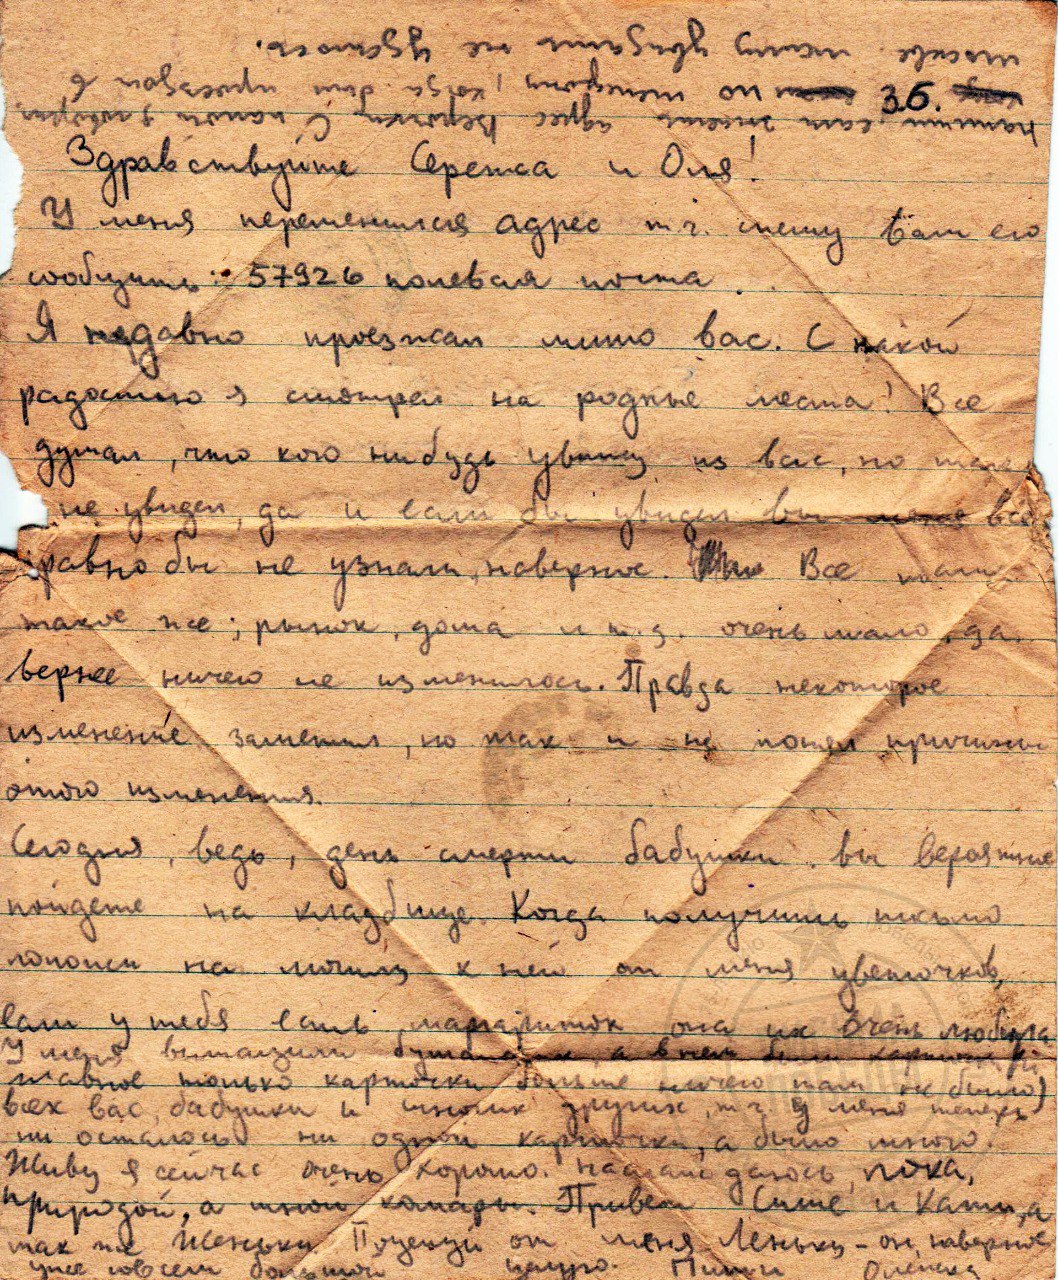 Здравствуйте Сережа и Оля!
У меня переменился адрес т.ч. спешу Вам его
сообщить: 57926 полевая почта
Я недавно проезжал мимо вас. С какой
радостью я смотрел на родные места! Все
думал, что кого нибудь увижу из вас, но так
не увидел, да и если бы увидел вы меня все
равно бы не узнали, наверное. Все
такое же; рынок, дома и т.д. очень мало, да
вернее ничего не изменилось. Правда некоторое
изменение заметил, но так и не понял причины
этого изменения.
Сегодня, ведь, день смерти бабушки. вы вероятно
пойдете на кладбище. Когда получишь письмо
положи на могилу к ней от меня цветочков,
если у тебя есть маргариток она их очень любила
У меня вытащили бумажник а в нем были карточки (и
главное только карточки больше ничего там не было)
всех вас, бабушки и многих других, т.ч. у меня теперь
ни осталось ни одной карточки, а было много.
Живу я сейчас очень хорошо. наслаждаюсь, пока,
природой, а много комары. Привет Симе и Кате, а
так же Женьки. Поцелуй от меня Леньку - он наверное
уже совсем большой целую. Пиши
напиши если знаешь адрес Верочки. С папой я говорил
по телефону, когда был проездом в
москве. маму увидать не удалось.
36.